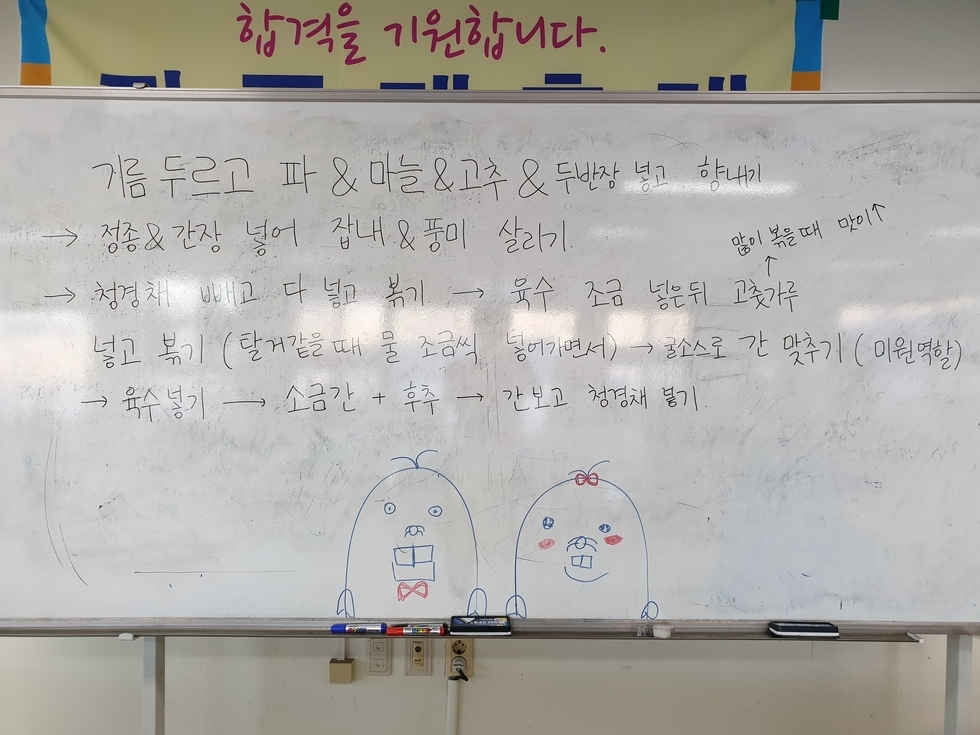 합격을 기원합니다.
기름 두르고 파 & 마늘 & 고추 & 두반장 넣고 향내기
→ 정종 & 간장 넣어 잡내 & 풍미 살리기.
많이 볶을때 맛이↑
↑
→ 청경채 빼고 다 넣고 볶기 → 육수 조금 넣은뒤 고춧가루
넣고 볶기 (탈거같을때 물 조금씩 넣어가면서) → 굴소스로 간 맞추기 (미원역할)
→ 육수넣기 → 소금간 + 후추 → 간보고 청경채 넣기.